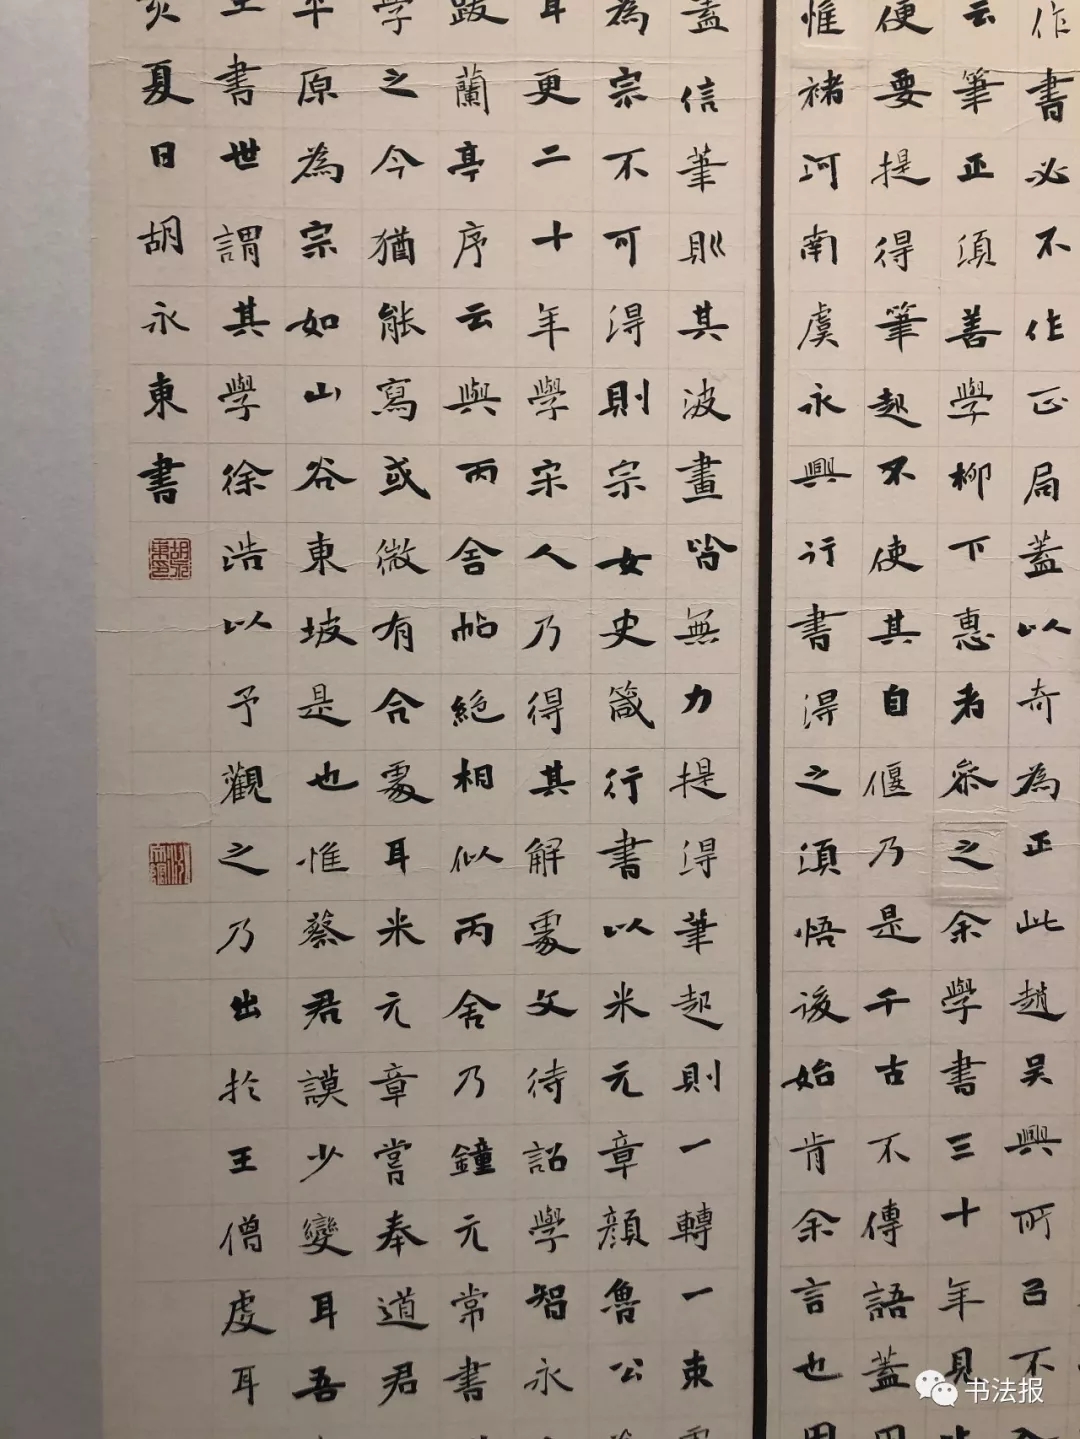 作書必不作正局蓋以奇為正此趙吳興所已不
云筆正須善學柳下惠者參之余學書三十年見
便要提得筆起不使其自偃乃是千古不傳語蓋
惟褚河南虞永興行書得之須悟後始肯余言也
蓋信筆則其波畫皆無力提得筆起則一轉一束
為宗不可得則宗女史箴行書以米元章顏魯公
耳更二十年學宋人乃得其解處文待詔學智永
跋蘭亭序云與丙舍帖絕相似丙舍乃鐘元常書
學之今猶能寫或微有合處耳米元章嘗奉道君
平原為宗如山谷東坡是也惟蔡君謨少變耳吾
書世謂其學徐浩以予觀之乃出於王僧虔耳
亥夏日胡永東書
书法报